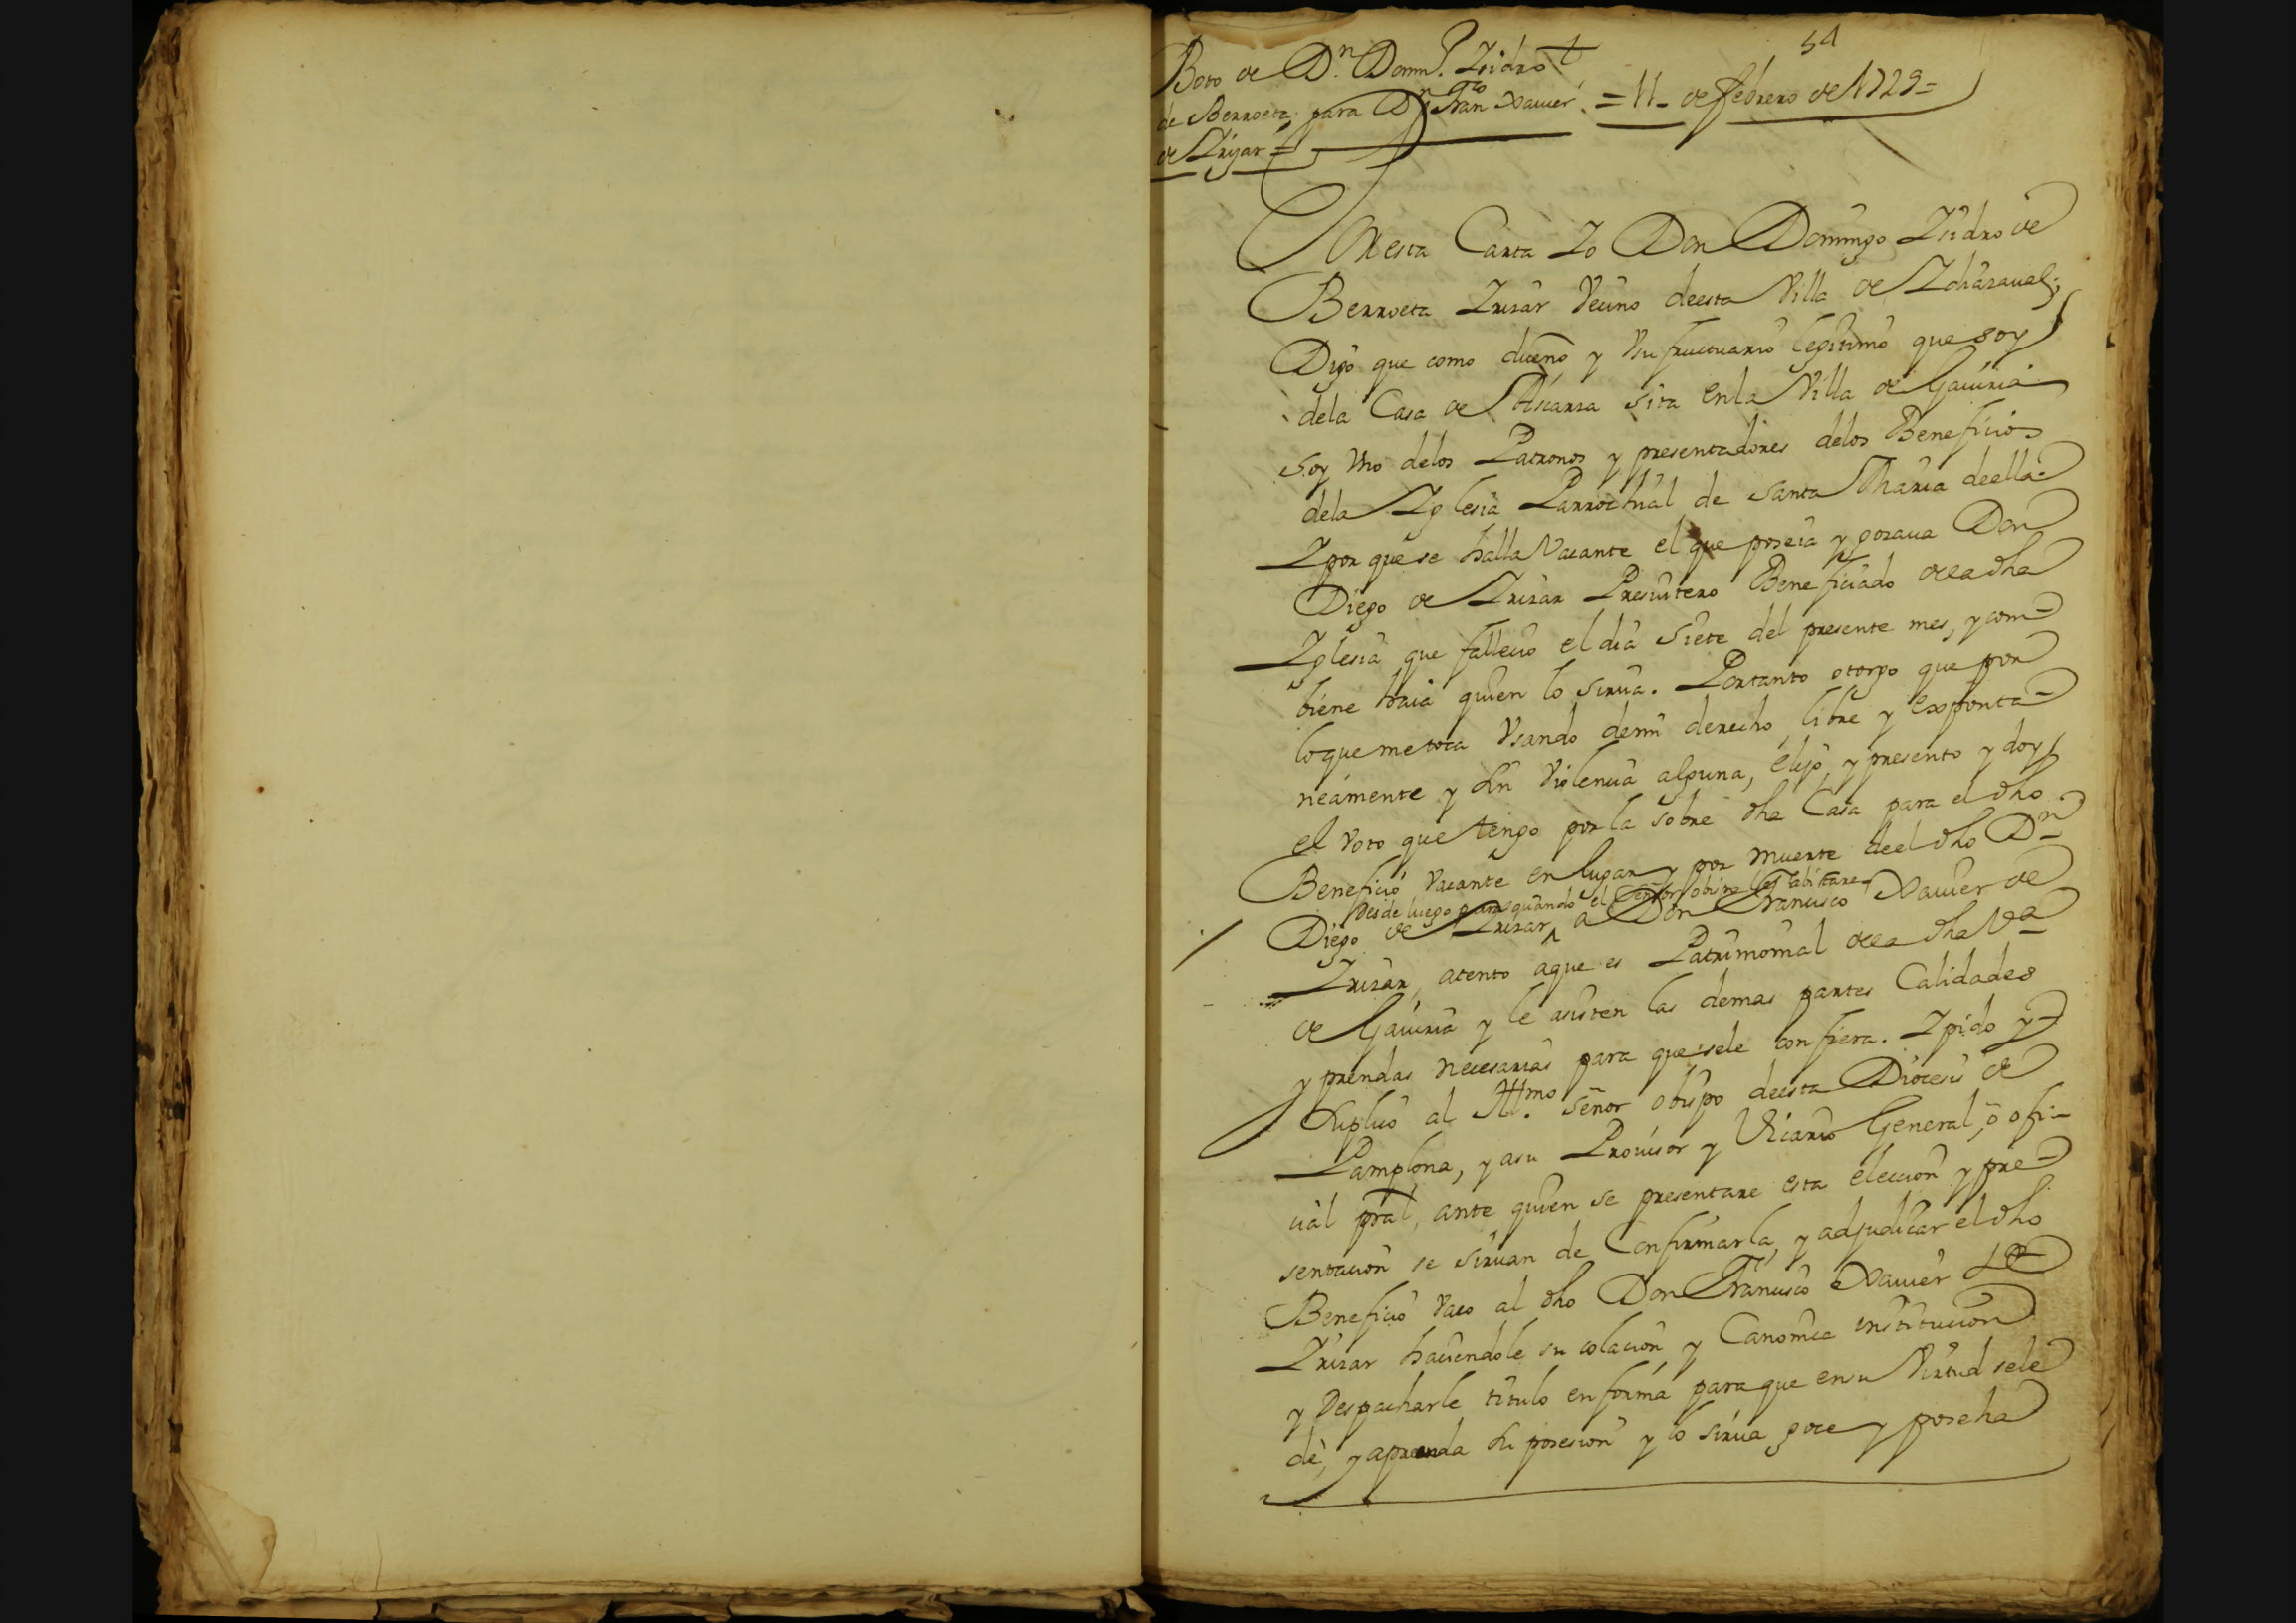 54
Boto de Dn. Domingo. Isidro
de Berroeta, para Dn Franco Xauier = 11 - de febrero de 1729 =
de Irizar =
En esta Carta Yo Don Domingo Isidro de
Berroeta Irizar Vecino deesta Villa de Idiazaual;
Digo que como dueño y Vsufructuario legitimo que soy
dela Casa de Ascarza sita enla Villa de Gauiria
soy Vno delos Patronos y presentadores delos Beneficios
dela Iglesia Parrochial de Santa Maria deella
Y por que se halla Vacante el que poseia y gozaua Don
Diego de Irizar Presuitero Beneficiado dela dha
Iglesia que fallecio el dia siete del presente mes, y com-
biene haia quien lo sirua. Portanto otorgo que por
loque metoca Vsando demi derecho, libre y exponta-
neamente y sin Violencia alguna, elijo, y presento y doy
el Voto que tengo por la sobre dha Casa para el dho
Beneficio Vacante en lugar y por muerte deel dho Dn
Desde luego para quando el Señor obispo
Diego de Irizar, a Don Francisco Xauier de
Irizar, atento aque es Patrimonial dela dha Va
de Gauiria y le asisten las demas partes Calidades
y prendas necesarias para quesele confiera. Y pido y
suplico al Illmo. señor obispo deesta Diocesis de
Pamplona, y asu Prouisor y Vicario General, ò ofi-
cial pral, ante quien se presentare esta eleccion y pre-
sentacion se siruan de Confirmarla, y adjudicar el dho
Beneficio Vaco al dho Don Francisco Xauier de
Irizar haciendole su colacion y Canonica institucion
y Despacharle titulo en forma para que ensu Virtud sele
dè, y aprenda su posesion y lo sirua goce y poseha